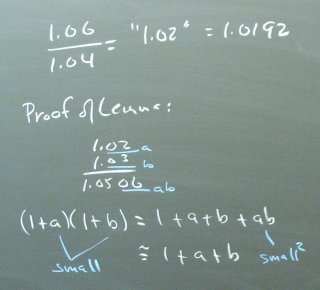 1.06
1.04 = "1.02" = 1.0192
Proof of Lemma:
1.02 a
1.03 b
1.0506 ab
(1+a)(1+b) = 1+a+b+ab
small
≅ 1+a+b small²